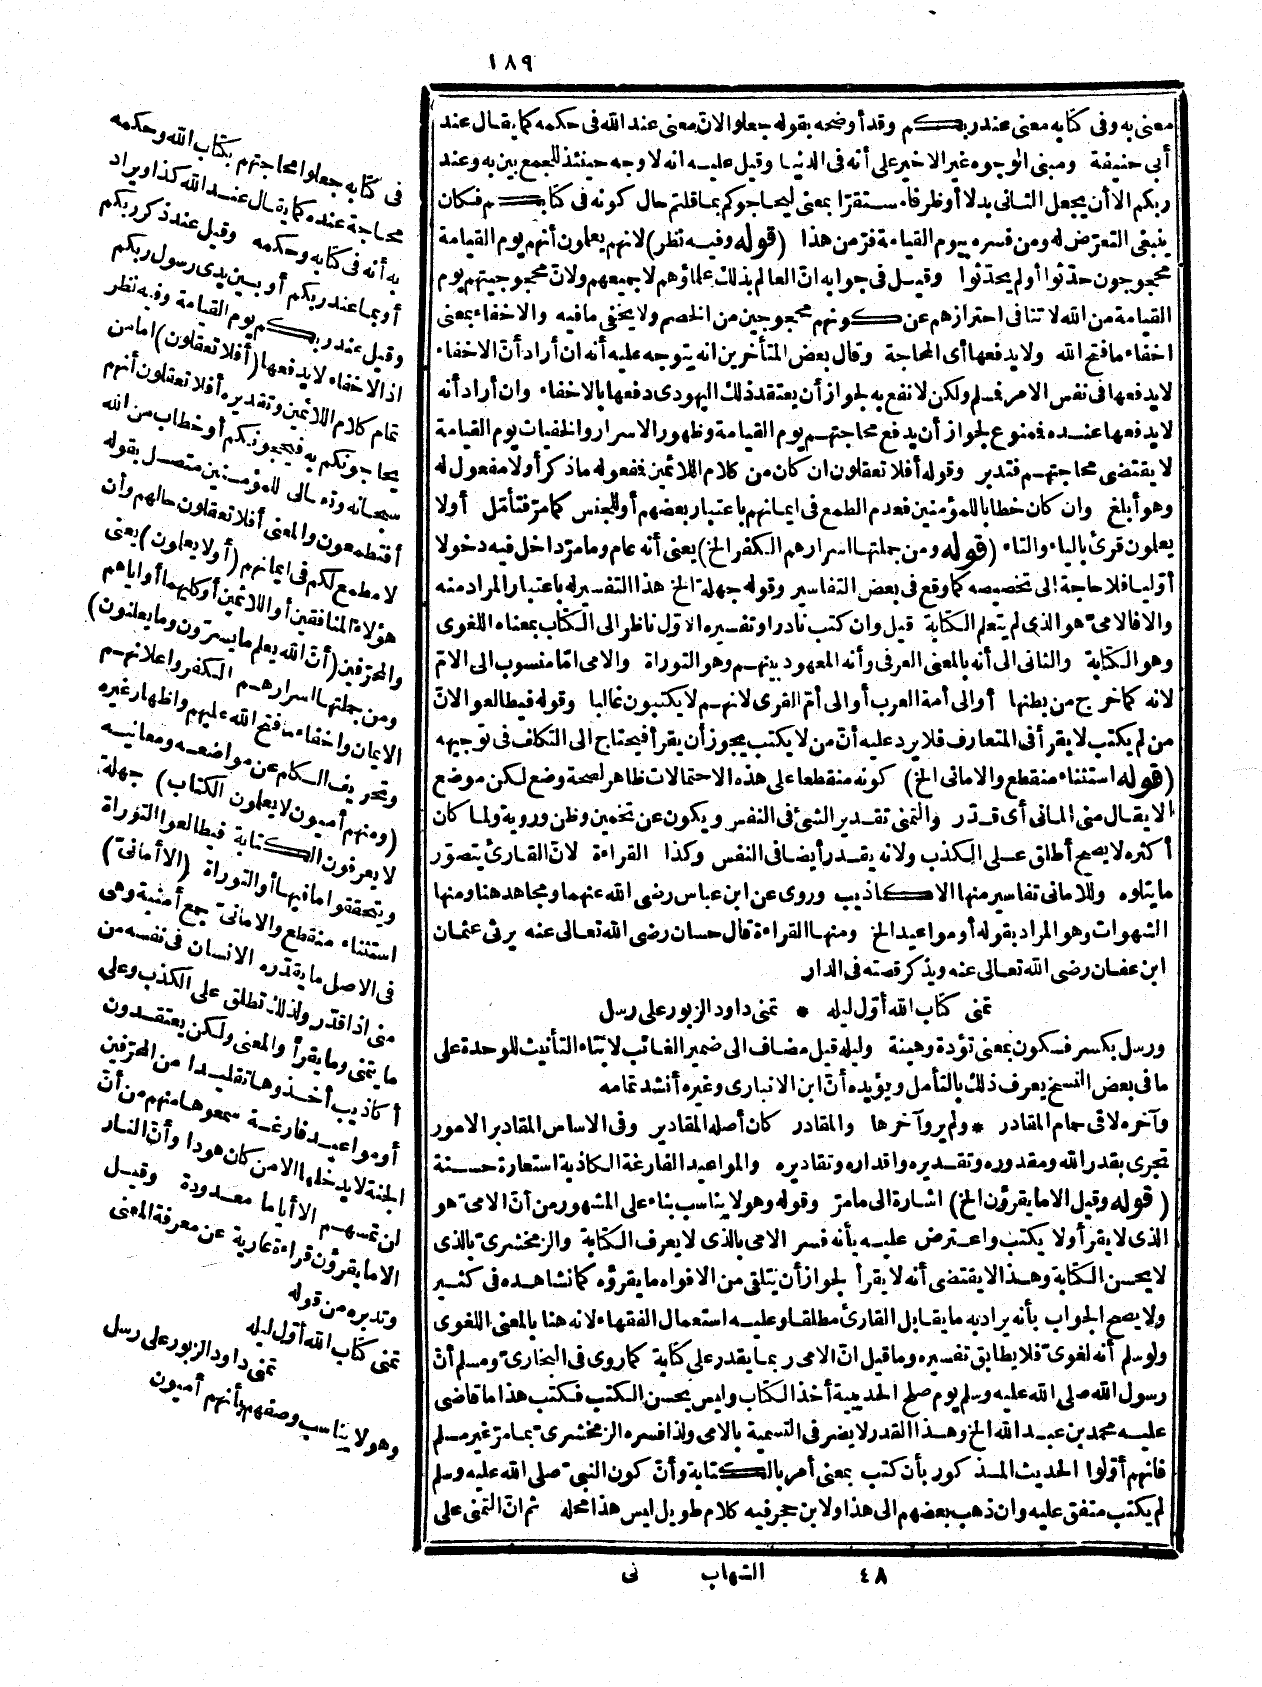 ١٨٩
معنى به وفى كتابه معنى عند ربكم وقد أوضحه بقوله جعلوا لانّ معنى عند الله فى حكمه كما يقال عند
أبى حنيفة ومبنى الوجوه غير الاخير على أنه فى الدنيا وقيل عليه انه لا وجه حينئذ للجمع بين به وعند
ربكم الا أن يجعل الثانى بدلا أو ظرفا مستقرا بمعنى ليحاجوكم بما قلتم حال كونه فى كتابكم فكان
ينبغى التعرّض له ومن فسره بيوم القيامة فرّ من هذا (قوله وفيه نظر) لانهم يعلمون أنهم يوم القيامة
محجوجون حدّثوا أو لم يحدّثوا وقيل فى جوابه انّ العالم بذلك علماؤهم لا جميعهم ولانّ محجوجيتهم يوم
القيامة من الله لا تنافى احترازهم عن كونهم محجوجين من الخصم ولا يخفى ما فيه والاخفاء بمعنى
اخفاء ما فتح الله ولا يدفعها أى المحاجة وقال بعض المتأخرين انه يتوجه عليه أنه ان أراد أنّ الاخفاء
لا يدفعها فى نفس الامر فسلم ولكن لا نفع به لجواز أن يعتقد ذلك اليهودى دفعها بالاخفاء وان أراد أنه
لا يدفعها عنده فممنوع لجواز أن يدفع محاجتهم يوم القيامة وظهور الاسرار والخفيات يوم القيامة
لا يقتضى محاجتهم فتدبر وقوله أفلا تعقلون ان كان من كلام اللائمين ففعوله ما ذكر أو لا مفعول له
وهو أبلغ وان كان خطابا للمؤمنين فعدم الطمع فى ايمانهم باعتبار بعضهم أو للجنس كما مرّ فتأمّل أولا
يعلمون قرئ بالياء والتاء (قوله ومن جملتها اسرارهم الكفر الخ) يعنى أنه عام وما مرّ داخل فيه دخولا
أوّليا فلا حاجة الى تخصيصه كما وقع فى بعض التفاسير وقوله جهلة الخ هذا التفسير له باعتبار المراد منه
والا فالامىّ هو الذى لم يتعلم الكتابة قيل وان كتب نادرا وتفسيره الاوّل ناظر الى الكتاب بمعناه اللغوى
وهو الكتابة والثانى الى أنه بالمعنى العرفى وأنه المعهود بينهم وهو التوراة والامى امّا منسوب الى الامّ
لانه كما خرج من بطنها أو الى أمة العرب أو الى أمّ القرى لانهم لا يكتبون غالبا وقوله فيطالعوا لانّ
من لم يكتب لا يقرأ فى المتعارف فلا يرد عليه أنّ من لا يكتب يجوز أن يقرأ فيحتاج الى التكلف فى توجيهه
(قوله استثناء منقطع والامانى الخ) كونه منقطعا على هذه الاحتمالات ظاهر لصحة وضع لكن موضع
الا يقال منى المانى أى قدّر والتمنى تقدير الشئ فى النفس ويكون عن تخمين وظن وروية ولما كان
أكثره لا يصح أطلق على الكذب ولانه يقدر أيضا فى النفس وكذا القراءة لانّ القارئ يتصوّر
ما يتلوه وللامانى تفاسير منها الاكاذيب وروى عن ابن عباس رضى الله عنهما ومجاهد هنا ومنها
الشهوات وهو المراد بقوله أو مواعيد الخ ومنها القراءة قال حسان رضى الله تعالى عنه يرثى عثمان
ابن عفان رضى الله تعالى عنه ويذكر قصته فى الدار
تمنى كتاب الله أوّل ليله * تمنى داود الزبور على رسل
ورسل بكسر فسكون بمعنى تؤدة وهينة وليله قيل مضاف الى ضمير الغائب لا بتاء التأنيث للوحدة على
ما فى بعض النسخ يعرف ذلك بالتأمل ويؤيده أنّ ابن الانبارى وغيره أنشد تمامه
وآخره لاقى حمام المقادر * ولم يرو آخرها والمقادر كان أصله المقادير وفى الاساس المقادير الامور
تجرى بقدر الله ومقدوره وتقديره واقداره وتقاديره والمواعيد الفارغة الكاذبة استعارة حسنة
(قوله وقيل الا ما يقرؤن الخ) اشارة الى ما مرّ وقوله وهو لا يناسب بناء على المشهور من أنّ الامىّ هو
الذى لا يقرأ ولا يكتب واعترض عليه بأنه فسر الامى بالذى لا يعرف الكتابة والزمخشرىّ بالذى
لا يحسن الكتابة وهذا لا يقتضى أنه لا يقرأ لجواز أن يتلقى من الافواه ما يقرؤه كما نشاهده فى كثير
ولا يصح الجواب بأنه يراد به ما يقابل القارئ مطلقا وعليه استعمال الفقهاء لانه هنا بالمعنى اللغوى
ولو سلم أنه لغوىّ فلا يطابق تفسيره وما قيل انّ الامى ربما يقدر على كتابة كما روى فى البخارىّ ومسلم أنّ
رسول الله صلى الله عليه وسلم يوم صلح الحديبية أخذ الكتاب وليس يحسن الكتب فكتب هذا ما قاضى
عليه محمد بن عبد الله الخ وهذا القدر لا يضر فى التسمية بالامى ولذا فسره الزمخشرىّ بما مرّ غير مسلم
فانهم أوّلوا الحديث المذكور بأن كتب بمعنى أمر بالكتابة وأنّ كون النبىّ صلى الله عليه وسلم
لم يكتب متفق عليه وان ذهب بعضهم الى هذا ولابن حجر فيه كلام طويل ليس هذا محله ثم انّ التمنى على
٤٨ الشهاب نى
فى كتابه جعلوا محاجتهم بكتاب الله وحكمه
محاجة عنده كما يقال عند الله كذا ويراد
به أنه فى كتابه وحكمه وقيل عند ذكر ربكم
أو بما عند ربكم أو بين يدى رسول ربكم
وقيل عند ربكم يوم القيامة وفيه نظر
اذ الاخفاء لا يدفعها (أفلا تعقلون) اما من
تمام كلام اللائمين وتقديره أفلا تعقلون أنهم
يحاجونكم به فيحجونكم أو خطاب من الله
سبحانه وتعالى للمؤمنين متصل بقوله
أفتطمعون والمعنى أفلا تعقلون حالهم وأن
لا مطمع لكم فى ايمانهم (أولا يعلمون) يعنى
هؤلاء المنافقين أو اللائمين أو كليهما أو اياهم
والمحرّفين (أنّ الله يعلم ما يسرّون وما يعلنون)
ومن جملتها اسرارهم الكفر واعلانهم
الايمان واخفاء ما فتح الله عليهم واظهار غيره
وتحريف الكلم عن مواضعه ومعانيه
(ومنهم أميون لا يعلمون الكتاب) جهلة
لا يعرفون الكتابة فيطالعوا التوراة
ويتحققوا ما فيها أو التوراة (الا أمانىّ)
استثناء منقطع والامانىّ جمع أمنية وهى
فى الاصل ما يقدّره الانسان فى نفسه من
منى اذا قدّر ولذلك تطلق على الكذب وعلى
ما يتمنى وما يقرأ والمعنى ولكن يعتقدون
أكاذيب أخذوها تقليدا من المحرّفين
أو مواعيد فارغة سمعوها منهم من أنّ
الجنة لا يدخلها الا من كان هودا وأنّ النار
لن تمسهم الا أياما معدودة وقيل
الا ما يقرؤن قراءة عارية عن معرفة المعنى
وتدبره من قوله
تمنى كتاب الله أوّل ليله
تمنى داود الزبور على رسل
وهو لا يناسب وصفهم بأنهم أميون